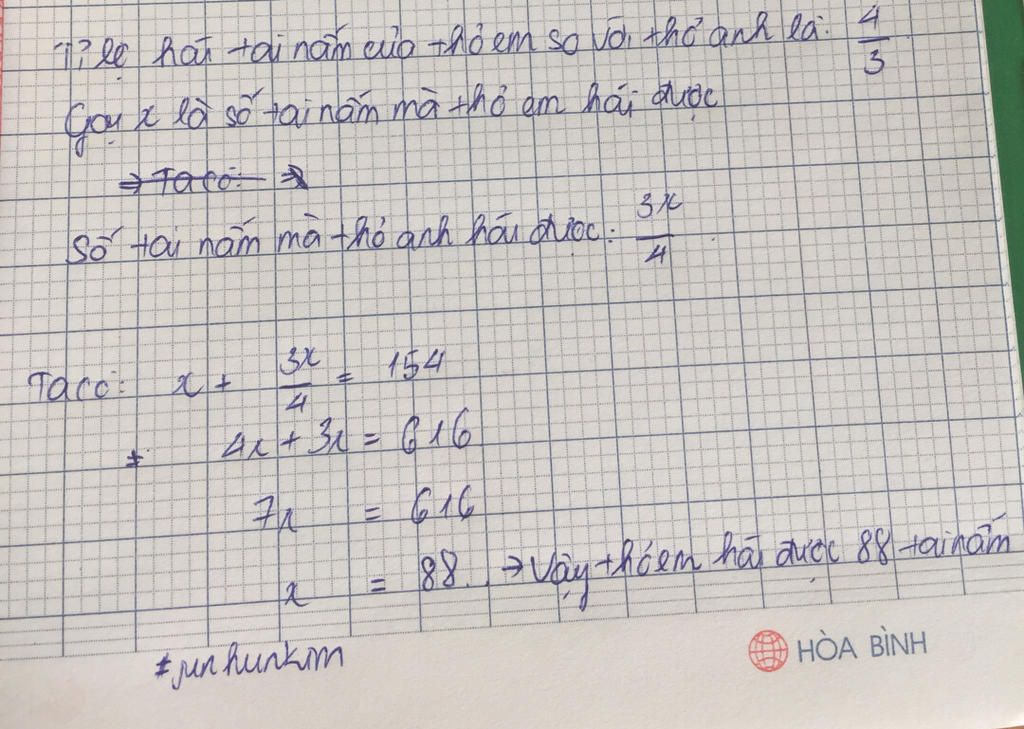 Tỉ lệ hái tai nấm của thỏ em so với thỏ anh là: 4/3
Gọi x là số tai nấm mà thỏ em hái được
⇒ Ta có: →
Số tai nấm mà thỏ anh hái được: 3x/4
Ta có: x + 3x/4 = 154
4x + 3x = 616
7x = 616
x = 88. → Vậy thỏ em hái được 88 tai nấm
#junhunkim
HÒA BÌNH